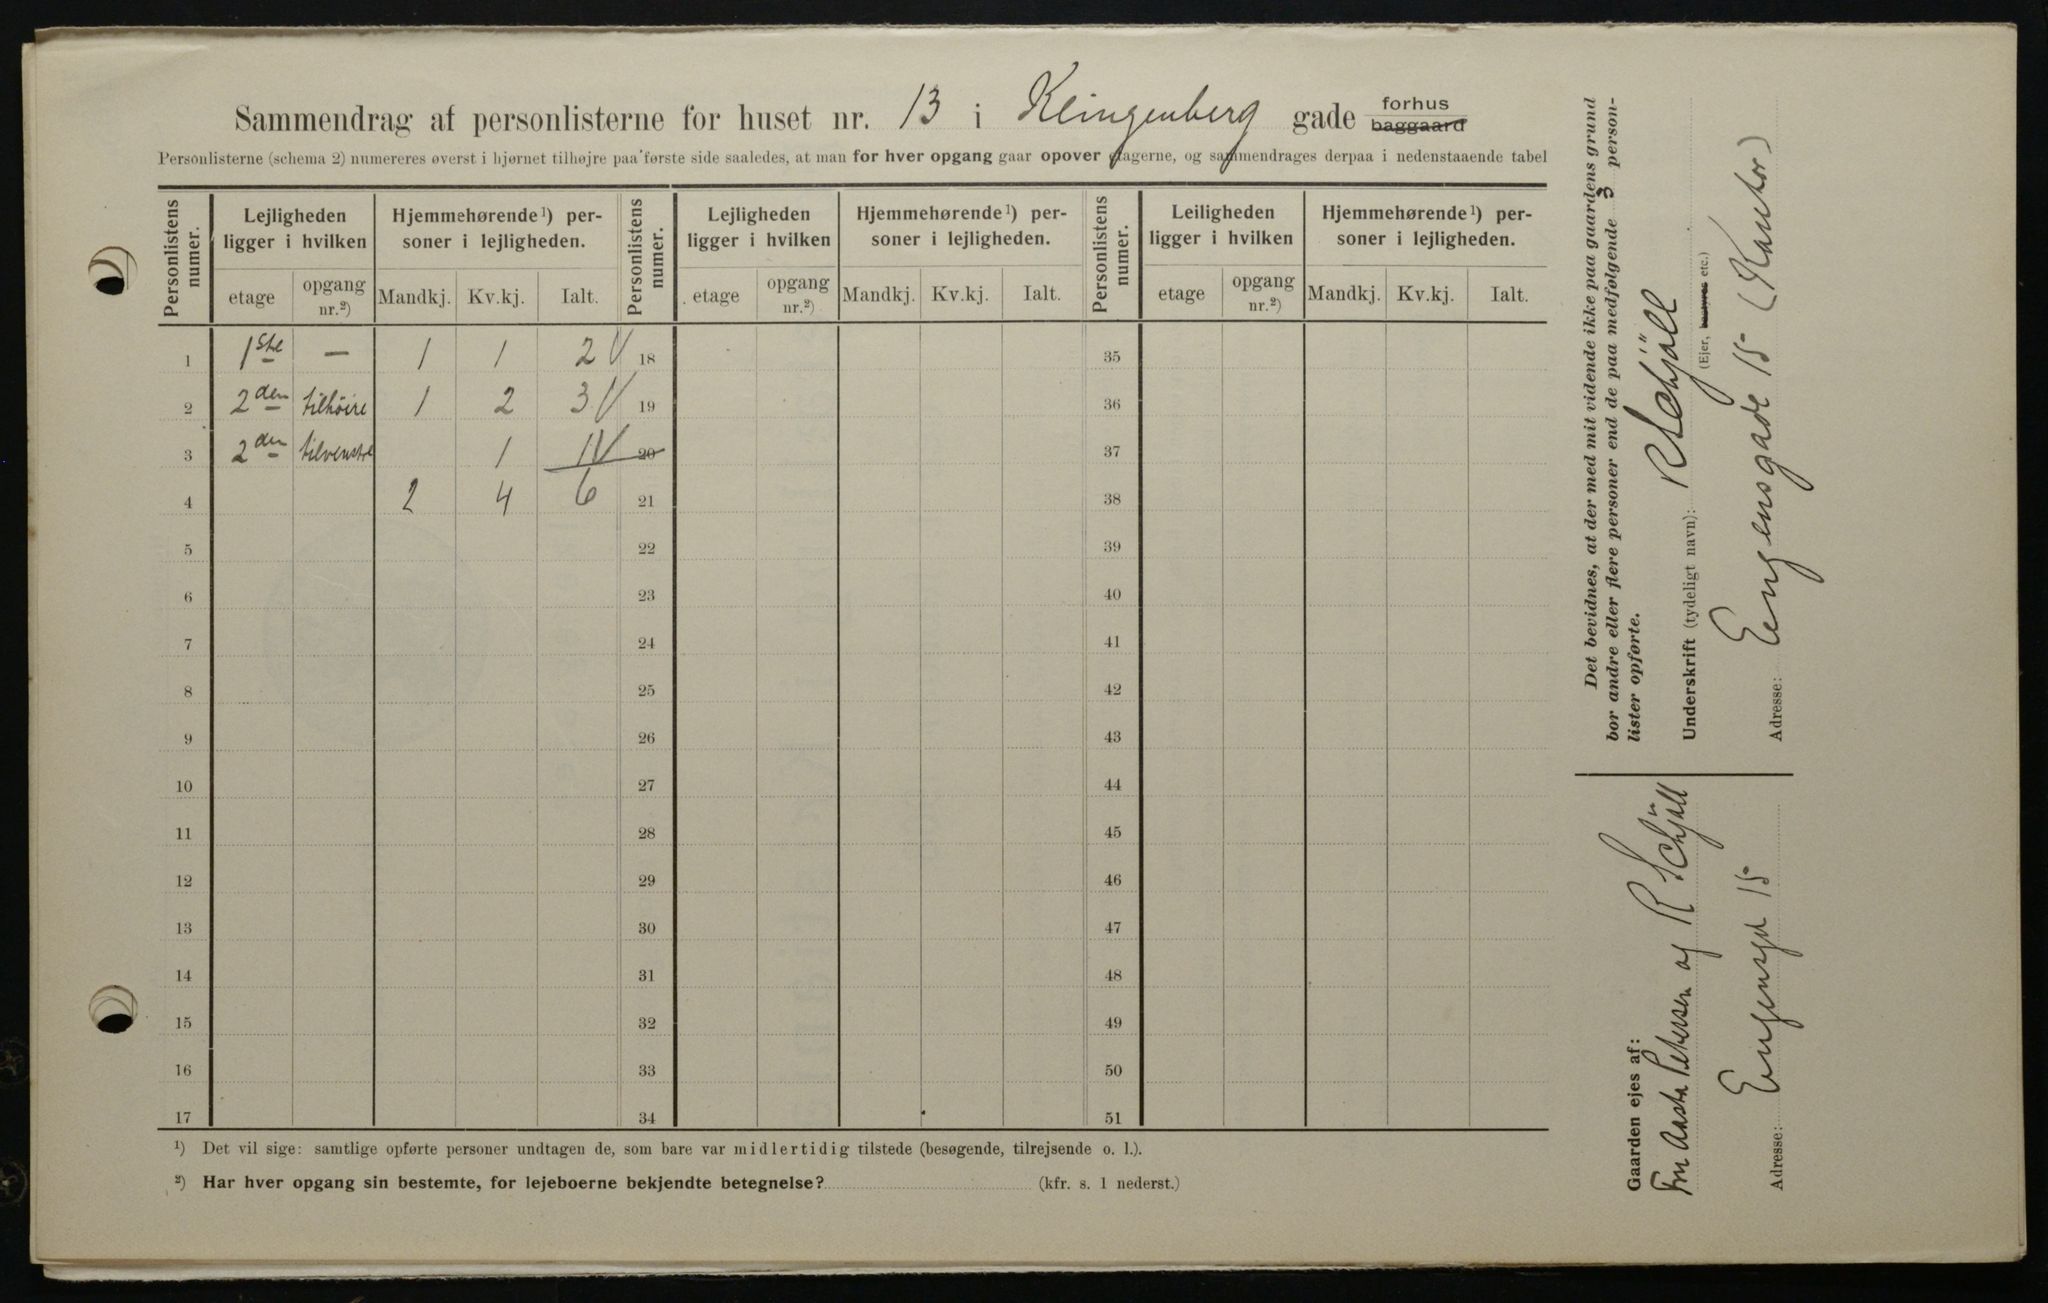 Sammendrag af personlisterne for huset nr. 13 i Klingenberg gade forhus baggaard
Personlisterne (schema 2) numereres øverst i hjørnet tilhøjre paa første side saaledes, at man for hver opgang gaar opover etagerne, og sammendrages derpaa i nedenstaaende tabel
Personlistens numer.
Lejligheden ligger i hvilken
Hjemmehørende ¹) personer i lejligheden.
etage
opgang nr.²)
Mandkj.
Kv.kj.
Ialt.
Personlistens numer.
Lejligheden ligger i hvilken
Hjemmehørende ¹) personer i lejligheden.
etage
opgang nr.²)
Mandkj.
Kv.kj.
Ialt.
Personlistens numer.
Leiligheden ligger i hvilken
Hjemmehørende ¹) personer i lejligheden.
etage
opgang nr.²)
Mandkj.
Kv.kj.
Ialt.
1 1ste — 1 1 2 V 18 35
2 2den tilhöire 1 2 3 V 19 36
3 2den tilvenstre 1 1 V 20 37
4 2 4 6 21 38
5 22 39
6 23 40
7 24 41
8 25 42
9 26 43
10 27 44
11 28 45
12 29 46
13 30 47
14 31 48
15 32 49
16 33 50
17 34 51
¹) Det vil sige: samtlige opførte personer undtagen de, som bare var midlertidig tilstede (besøgende, tilrejsende o. l.).
²) Har hver opgang sin bestemte, for lejeboerne bekjendte betegnelse? (kfr. s. 1 nederst.)
Det bevidnes, at der med mit vidende ikke paa gaardens grund
bor andre eller flere personer end de paa medfølgende 3 person-
lister opførte.
Underskrift (tydeligt navn): R Schjöll
(Ejer, bestyrer etc.)
Adresse: Eugensgade 15 (Kontor)
Gaarden ejes af:
Fru Aasta Petersen og R Schjöll
Adresse: Eugensgd 15